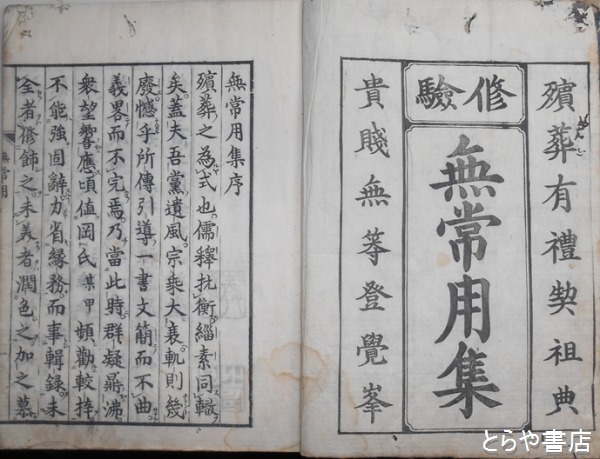 殯葬有禮契祖典
修驗
無常用集
貴賤無等登覺峯
無常用集序
殯葬之為式也儒釋抗衡緇素同轍
矣蓋夫吾黨遺風宗乘大衰軌則幾
廢憾乎所傳引導一書文簡而不曲
義畧而不完焉乃當此時群疑鼎沸
衆望響應頃値岡氏某甲頻勸較挍
不能強固辭力省緣務而事輯錄未
全者修飾之未義者潤色之加之慕
無常用
とらや書店